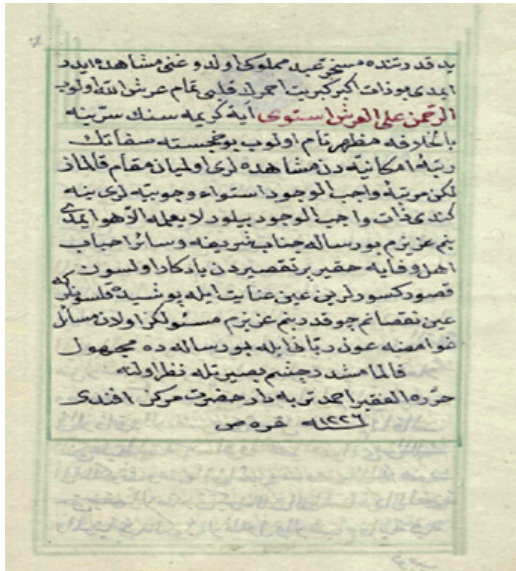 ید قدرتنده مسخر عبد مملوکی اولدوغنی مشاهده ایدر
ایمدی بو ذات اکبر کبریت احمرك قلبی تمام عرش الله اولوب
الرحمن علی العرش استوی آیهٔ کریمه سنك سرّینه
بالخلافه مظهر تام اولوب بو خجسته صفاتك
رتبهٔ امکانیه دن مشاهده لری اولمیان مقام قالماز
لکن مرتبهٔ واجب الوجود استواء وجوبیّه لری ینه
کندی ذات واجب الوجود بیلور لا یعلمه الّا هو ایمدی
بنم عزیزم بو رساله جناب شریفه و سائر احباب
اهل وفایه حقیر پر تقصیردن یادکار اولسون
قصور کسورلرین عین عنایت ایله پوشیده قلسونلر که
عین نقصانم چوقدر بنم عزیزم مسئولکز اولان مسائل
غوامضه عون ربّانی ایله بو رساله ده مجهول
قالمامشدر چشم بصیرتله نظر اولنه
حرّره الفقیر احمد تربه دار حضرت مرکز افندی
سنه ١٢٢٦ غره ص